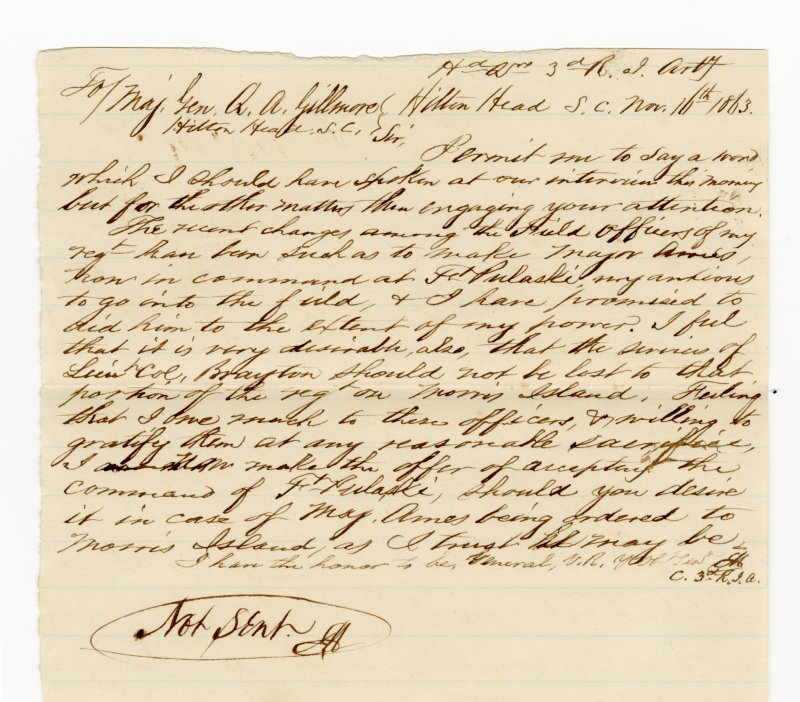 Hd Qrs 3d R. I. Arty
To/ Maj. Gen. Q. A. Gillmore { Hilton Head S. C. Nov. 16th 1863.
Hilton Head. S. C. } Sir,
Permit me to say a word
which I should have spoken at our interview this morning
but for the other matters then engaging your attention.
The recent changes among the Field Officers of my
regt have been such as to make Major Ames,
now in command at Ft Pulaski, very anxious
to go onto the field, & I have promised to
aid him to the extent of my power. I feel
that it is very desirable, also, that the services of
Lieut Col. Brayton should not be lost to that
portion of the regt on Morris Island. Feeling
that I owe much to these officers, & willing to
gratify them at any reasonable sacrifice,
I make the offer of accepting the
command of Ft Pulaski, should you desire
it in case of Maj. Ames being ordered to
Morris Island, as I trust it may be
I have the honor to be, General, V. R. Yr Obt Servt
C. 3d R. I. A.
Not Sent.